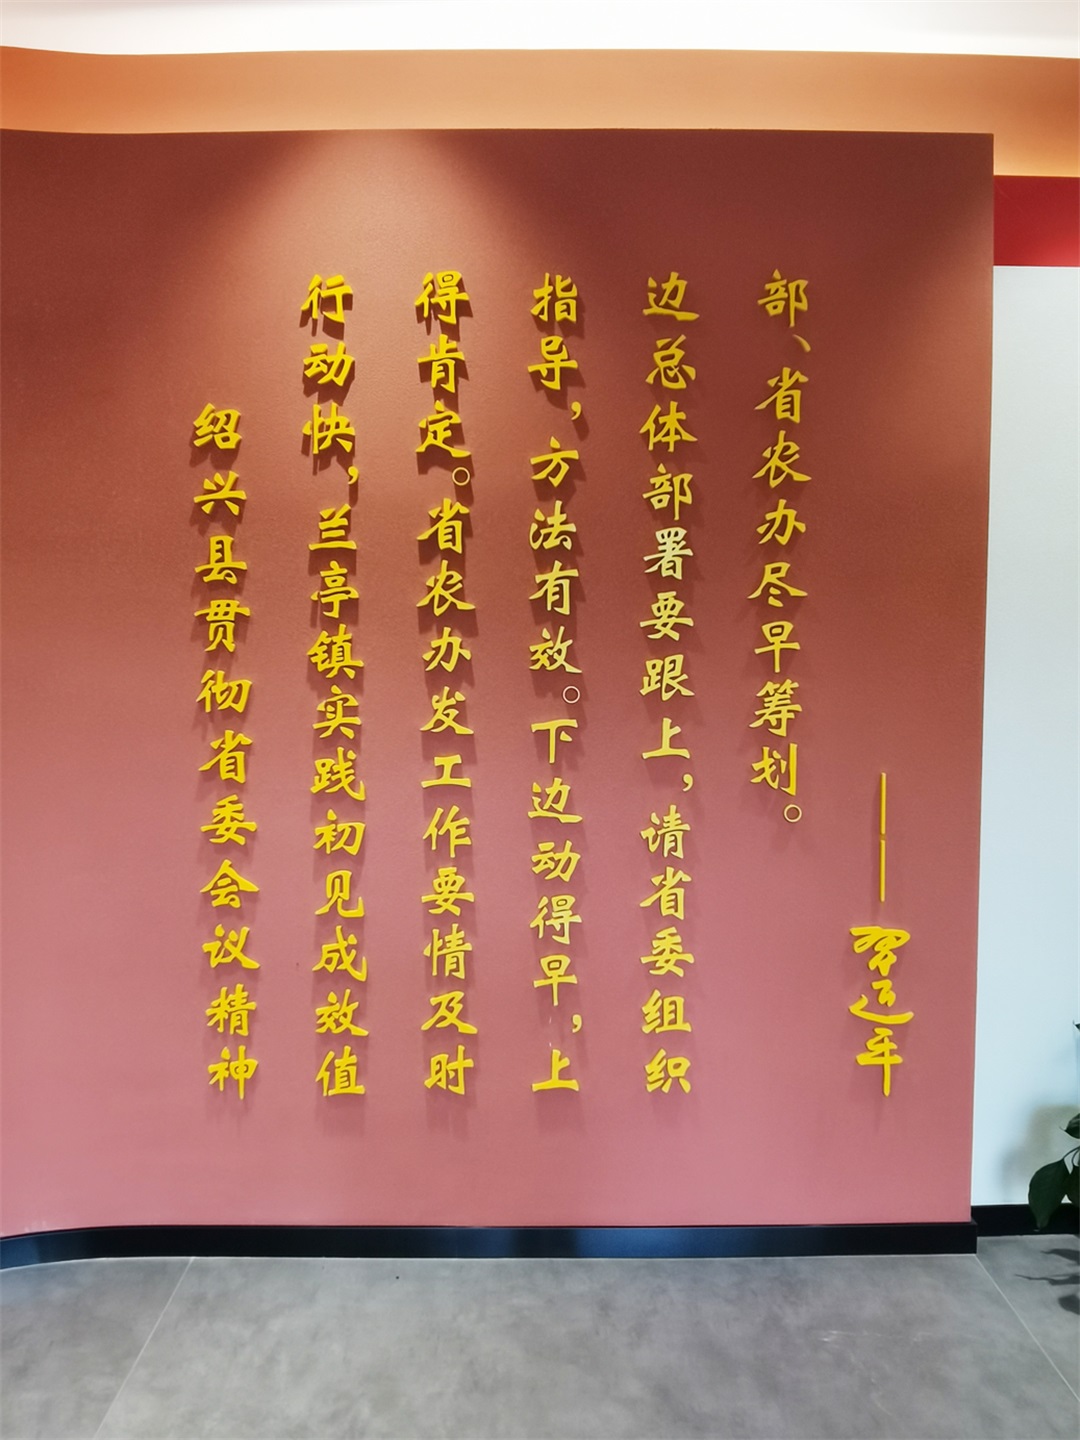 绍兴县贯彻省委会议精神
行动快，兰亭镇实践初见成效值
得肯定。省农办发工作要情及时
指导，方法有效。下边动得早，上
边总体部署要跟上，请省委组织
部、省农办尽早筹划。
——习近平